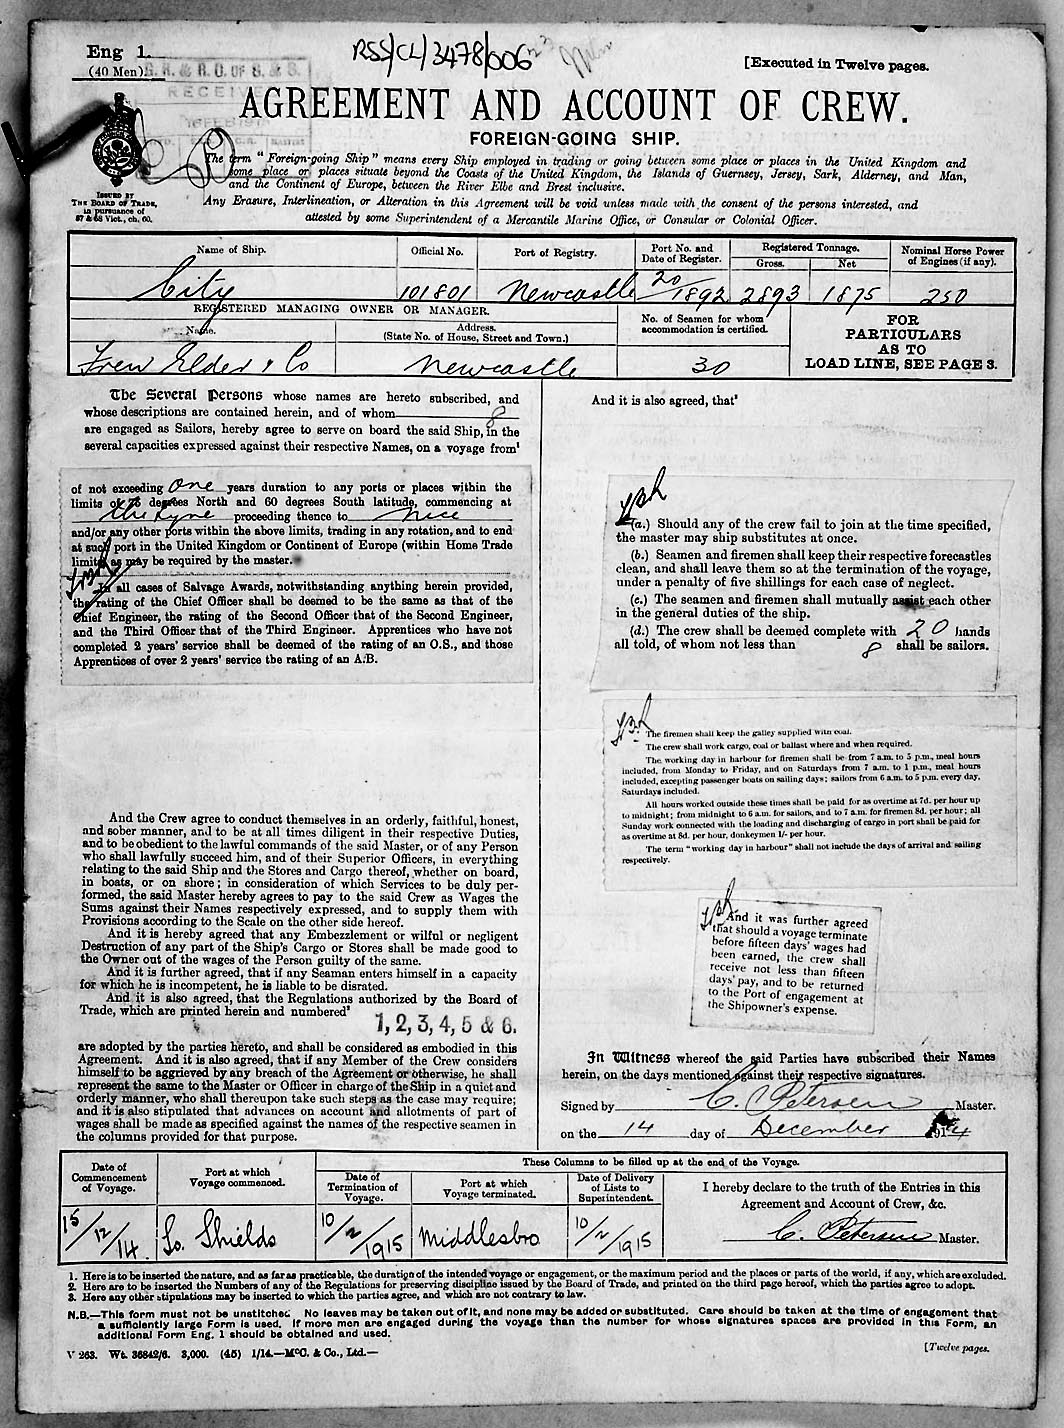 Eng 1.
(40 Men)
RSS/CL/3478/006
[Executed in Twelve pages.
RECEIVE
AGREEMENT AND ACCOUNT OF CREW.
FOREIGN-GOING SHIP.
The term "Foreign-going Ship" means every Ship employed in trading or going between some place or places in the United Kingdom and
some place or places situate beyond the Coasts of the United Kingdom, the Islands of Guernsey, Jersey, Sark, Alderney, and Man,
and the Continent of Europe, between the River Elbe and Brest inclusive.
Any Erasure, Interlineation, or Alteration in this Agreement will be void unless made with the consent of the persons interested, and
attested by some Superintendent of a Mercantile Marine Office, or Consular or Colonial Officer.
ISSUED BY
THE BOARD OF TRADE,
in pursuance of
57 & 58 Vict., ch. 60.
Name of Ship. Official No. Port of Registry. Port No. and Date of Register. Registered Tonnage. Gross. Net Nominal Horse Power of Engines (if any).
City 101801 Newcastle 20/1892 2893 1875 250
REGISTERED MANAGING OWNER OR MANAGER.
Name. Address. (State No. of House, Street and Town.)
No. of Seamen for whom accommodation is certified.
Elder & Co Newcastle 30
FOR
PARTICULARS
AS TO
LOAD LINE, SEE PAGE 3.
The Several Persons whose names are hereto subscribed, and
whose descriptions are contained herein, and of whom 8
are engaged as Sailors, hereby agree to serve on board the said Ship, in the
several capacities expressed against their respective Names, on a voyage from¹
of not exceeding one years duration to any ports or places within the
limits of 75 degrees North and 60 degrees South latitude, commencing at
the Tyne proceeding thence to Nice
and/or any other ports within the above limits, trading in any rotation, and to end
at such port in the United Kingdom or Continent of Europe (within Home Trade
limits) as may be required by the master.
In all cases of Salvage Awards, notwithstanding anything herein provided,
the rating of the Chief Officer shall be deemed to be the same as that of the
Chief Engineer, the rating of the Second Officer that of the Second Engineer,
and the Third Officer that of the Third Engineer. Apprentices who have not
completed 2 years' service shall be deemed of the rating of an O.S., and those
Apprentices of over 2 years' service the rating of an A.B.
And the Crew agree to conduct themselves in an orderly, faithful, honest,
and sober manner, and to be at all times diligent in their respective Duties,
and to be obedient to the lawful commands of the said Master, or of any Person
who shall lawfully succeed him, and of their Superior Officers, in everything
relating to the said Ship and the Stores and Cargo thereof, whether on board,
in boats, or on shore; in consideration of which Services to be duly per-
formed, the said Master hereby agrees to pay to the said Crew as Wages the
Sums against their Names respectively expressed, and to supply them with
Provisions according to the Scale on the other side hereof.
And it is hereby agreed that any Embezzlement or wilful or negligent
Destruction of any part of the Ship's Cargo or Stores shall be made good to
the Owner out of the wages of the Person guilty of the same.
And it is further agreed, that if any Seaman enters himself in a capacity
for which he is incompetent, he is liable to be disrated.
And it is also agreed, that the Regulations authorized by the Board of
Trade, which are printed herein and numbered²
1, 2, 3, 4, 5 & 6.
are adopted by the parties hereto, and shall be considered as embodied in this
Agreement. And it is also agreed, that if any Member of the Crew considers
himself to be aggrieved by any breach of the Agreement or otherwise, he shall
represent the same to the Master or Officer in charge of the Ship in a quiet and
orderly manner, who shall thereupon take such steps as the case may require;
and it is also stipulated that advances on account and allotments of part of
wages shall be made as specified against the names of the respective seamen in
the columns provided for that purpose.
And it is also agreed, that³
(a.) Should any of the crew fail to join at the time specified,
the master may ship substitutes at once.
(b.) Seamen and firemen shall keep their respective forecastles
clean, and shall leave them so at the termination of the voyage,
under a penalty of five shillings for each case of neglect.
(c.) The seamen and firemen shall mutually assist each other
in the general duties of the ship.
(d.) The crew shall be deemed complete with 20 hands
all told, of whom not less than 8 shall be sailors.
The firemen shall keep the galley supplied with coal.
The crew shall work cargo, coal or ballast where and when required.
The working day in harbour for firemen shall be from 7 a.m. to 5 p.m., meal hours
included, from Monday to Friday, and on Saturdays from 7 a.m. to 1 p.m., meal hours
included, excepting passenger boats on sailing days; sailors from 6 a.m. to 5 p.m. every day,
Saturdays included.
All hours worked outside these times shall be paid for as overtime at 7d. per hour up
to midnight; from midnight to 6 a.m. for sailors, and to 7 a.m. for firemen 8d. per hour; all
Sunday work connected with the loading and discharging of cargo in port shall be paid for
as overtime at 8d. per hour, donkeymen 1/- per hour.
The term "working day in harbour" shall not include the days of arrival and sailing
respectively.
And it was further agreed
that should a voyage terminate
before fifteen days' wages had
been earned, the crew shall
receive not less than fifteen
days' pay, and to be returned
to the Port of engagement at
the Shipowner's expense.
In Witness whereof the said Parties have subscribed their Names
herein, on the days mentioned against their respective signatures.
Signed by C. Petersen Master.
on the 14 day of December 1914
Date of Commencement of Voyage. Port at which Voyage commenced. These Columns to be filled up at the end of the Voyage.
Date of Termination of Voyage. Port at which Voyage terminated. Date of Delivery of Lists to Superintendent.
I hereby declare to the truth of the Entries in this
Agreement and Account of Crew, &c.
15/12/14. So. Shields 10/2/1915 Middlesbro 10/2/1915 C. Petersen Master.
1. Here is to be inserted the nature, and as far as practicable, the duration of the intended voyage or engagement, or the maximum period and the places or parts of the world, if any, which are excluded.
2. Here are to be inserted the Numbers of any of the Regulations for preserving discipline issued by the Board of Trade, and printed on the third page hereof, which the parties agree to adopt.
3. Here any other stipulations may be inserted to which the parties agree, and which are not contrary to law.
N.B.—This form must not be unstitched. No leaves may be taken out of it, and none may be added or substituted. Care should be taken at the time of engagement that
a sufficiently large Form is used. If more men are engaged during the voyage than the number for whose signatures spaces are provided in this Form, an
additional Form Eng. 1 should be obtained and used.
V 263. Wt. 36842/6. 3,000. (45) 1/14.—McC. & Co., Ltd.—
[Twelve pages.